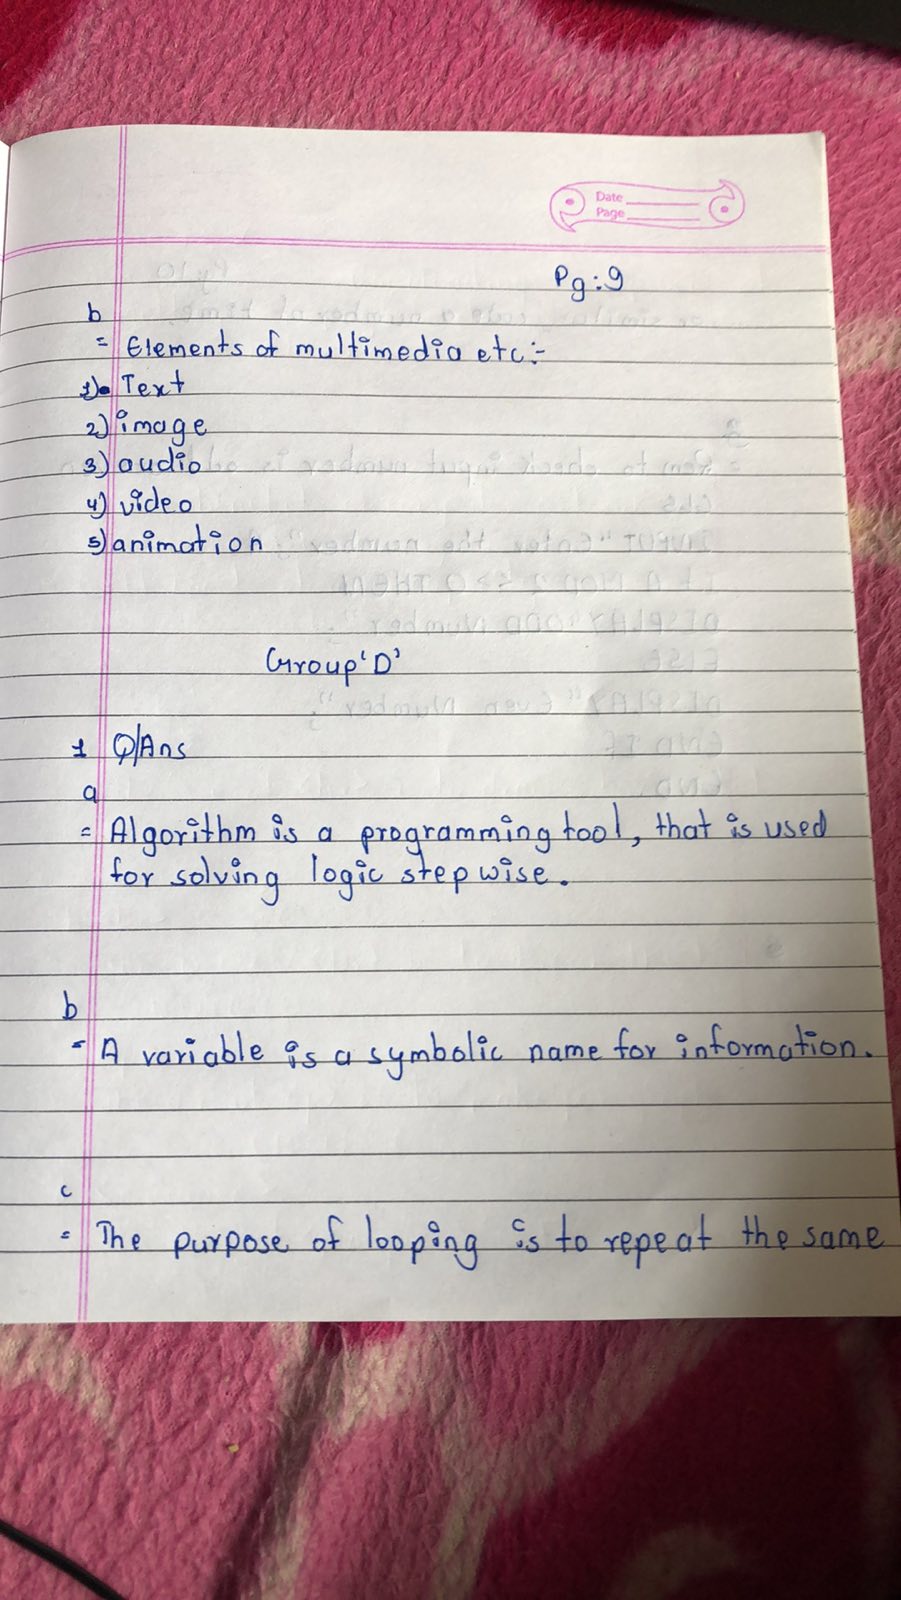 Date
Page
Pg:9
b
= Elements of multimedia etc:-
1) Text
2) image
3) audio
4) video
5) animation
Group 'D'
1 Q/Ans
a
= Algorithm is a programming tool, that is used
for solving logic step wise.
b
- A variable is a symbolic name for information.
c
= The purpose of looping is to repeat the same